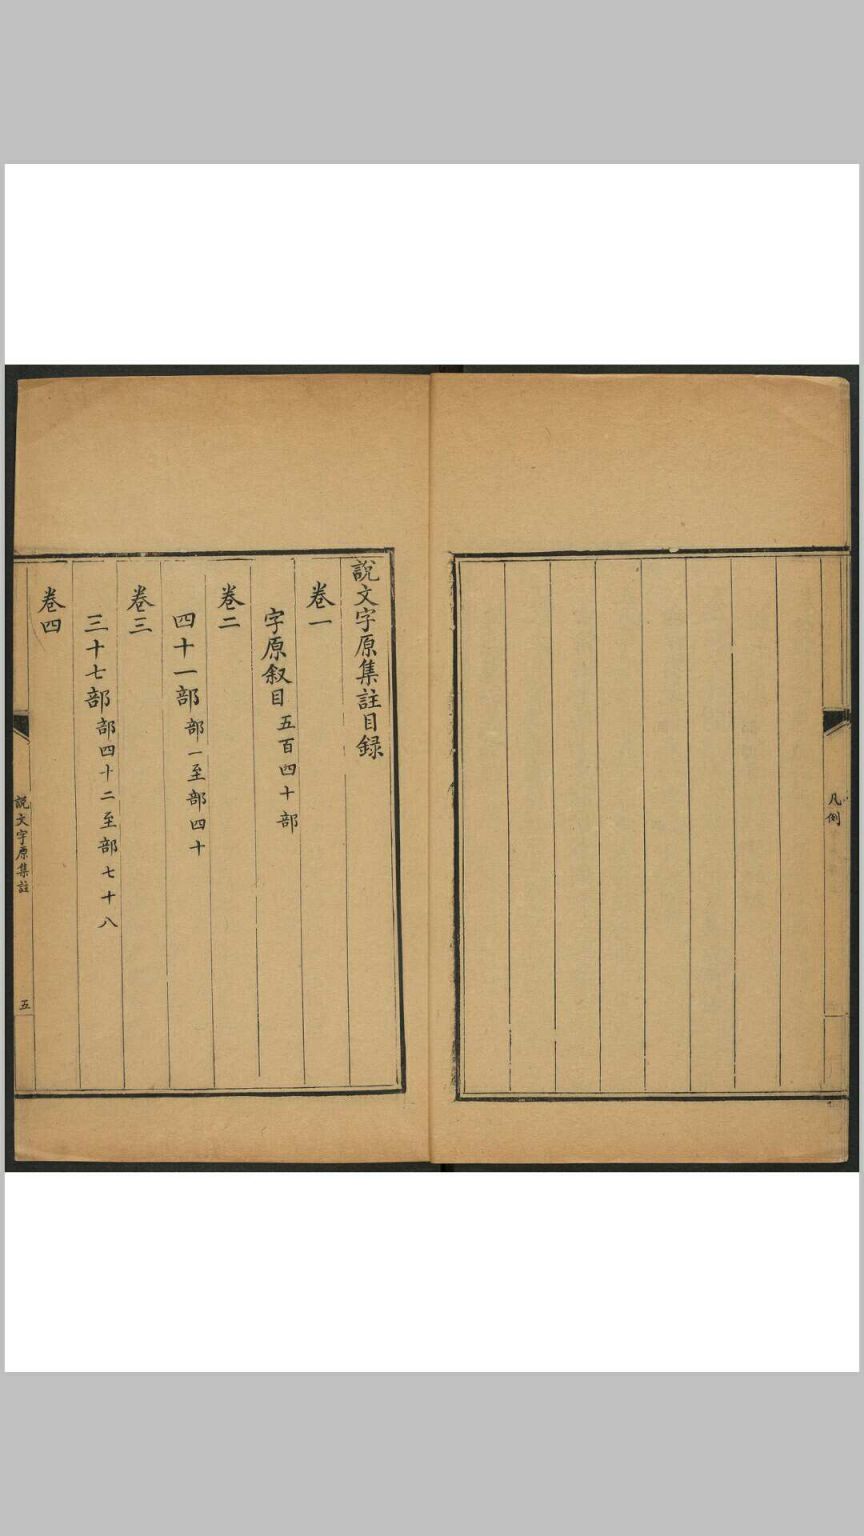 凡例
說文字原集註目録
卷一
字原叙目 五百四十部
卷二
四十一部 部一至部四十
卷三
三十七部 部四十二至部七十八
卷四
說文字原集註
五